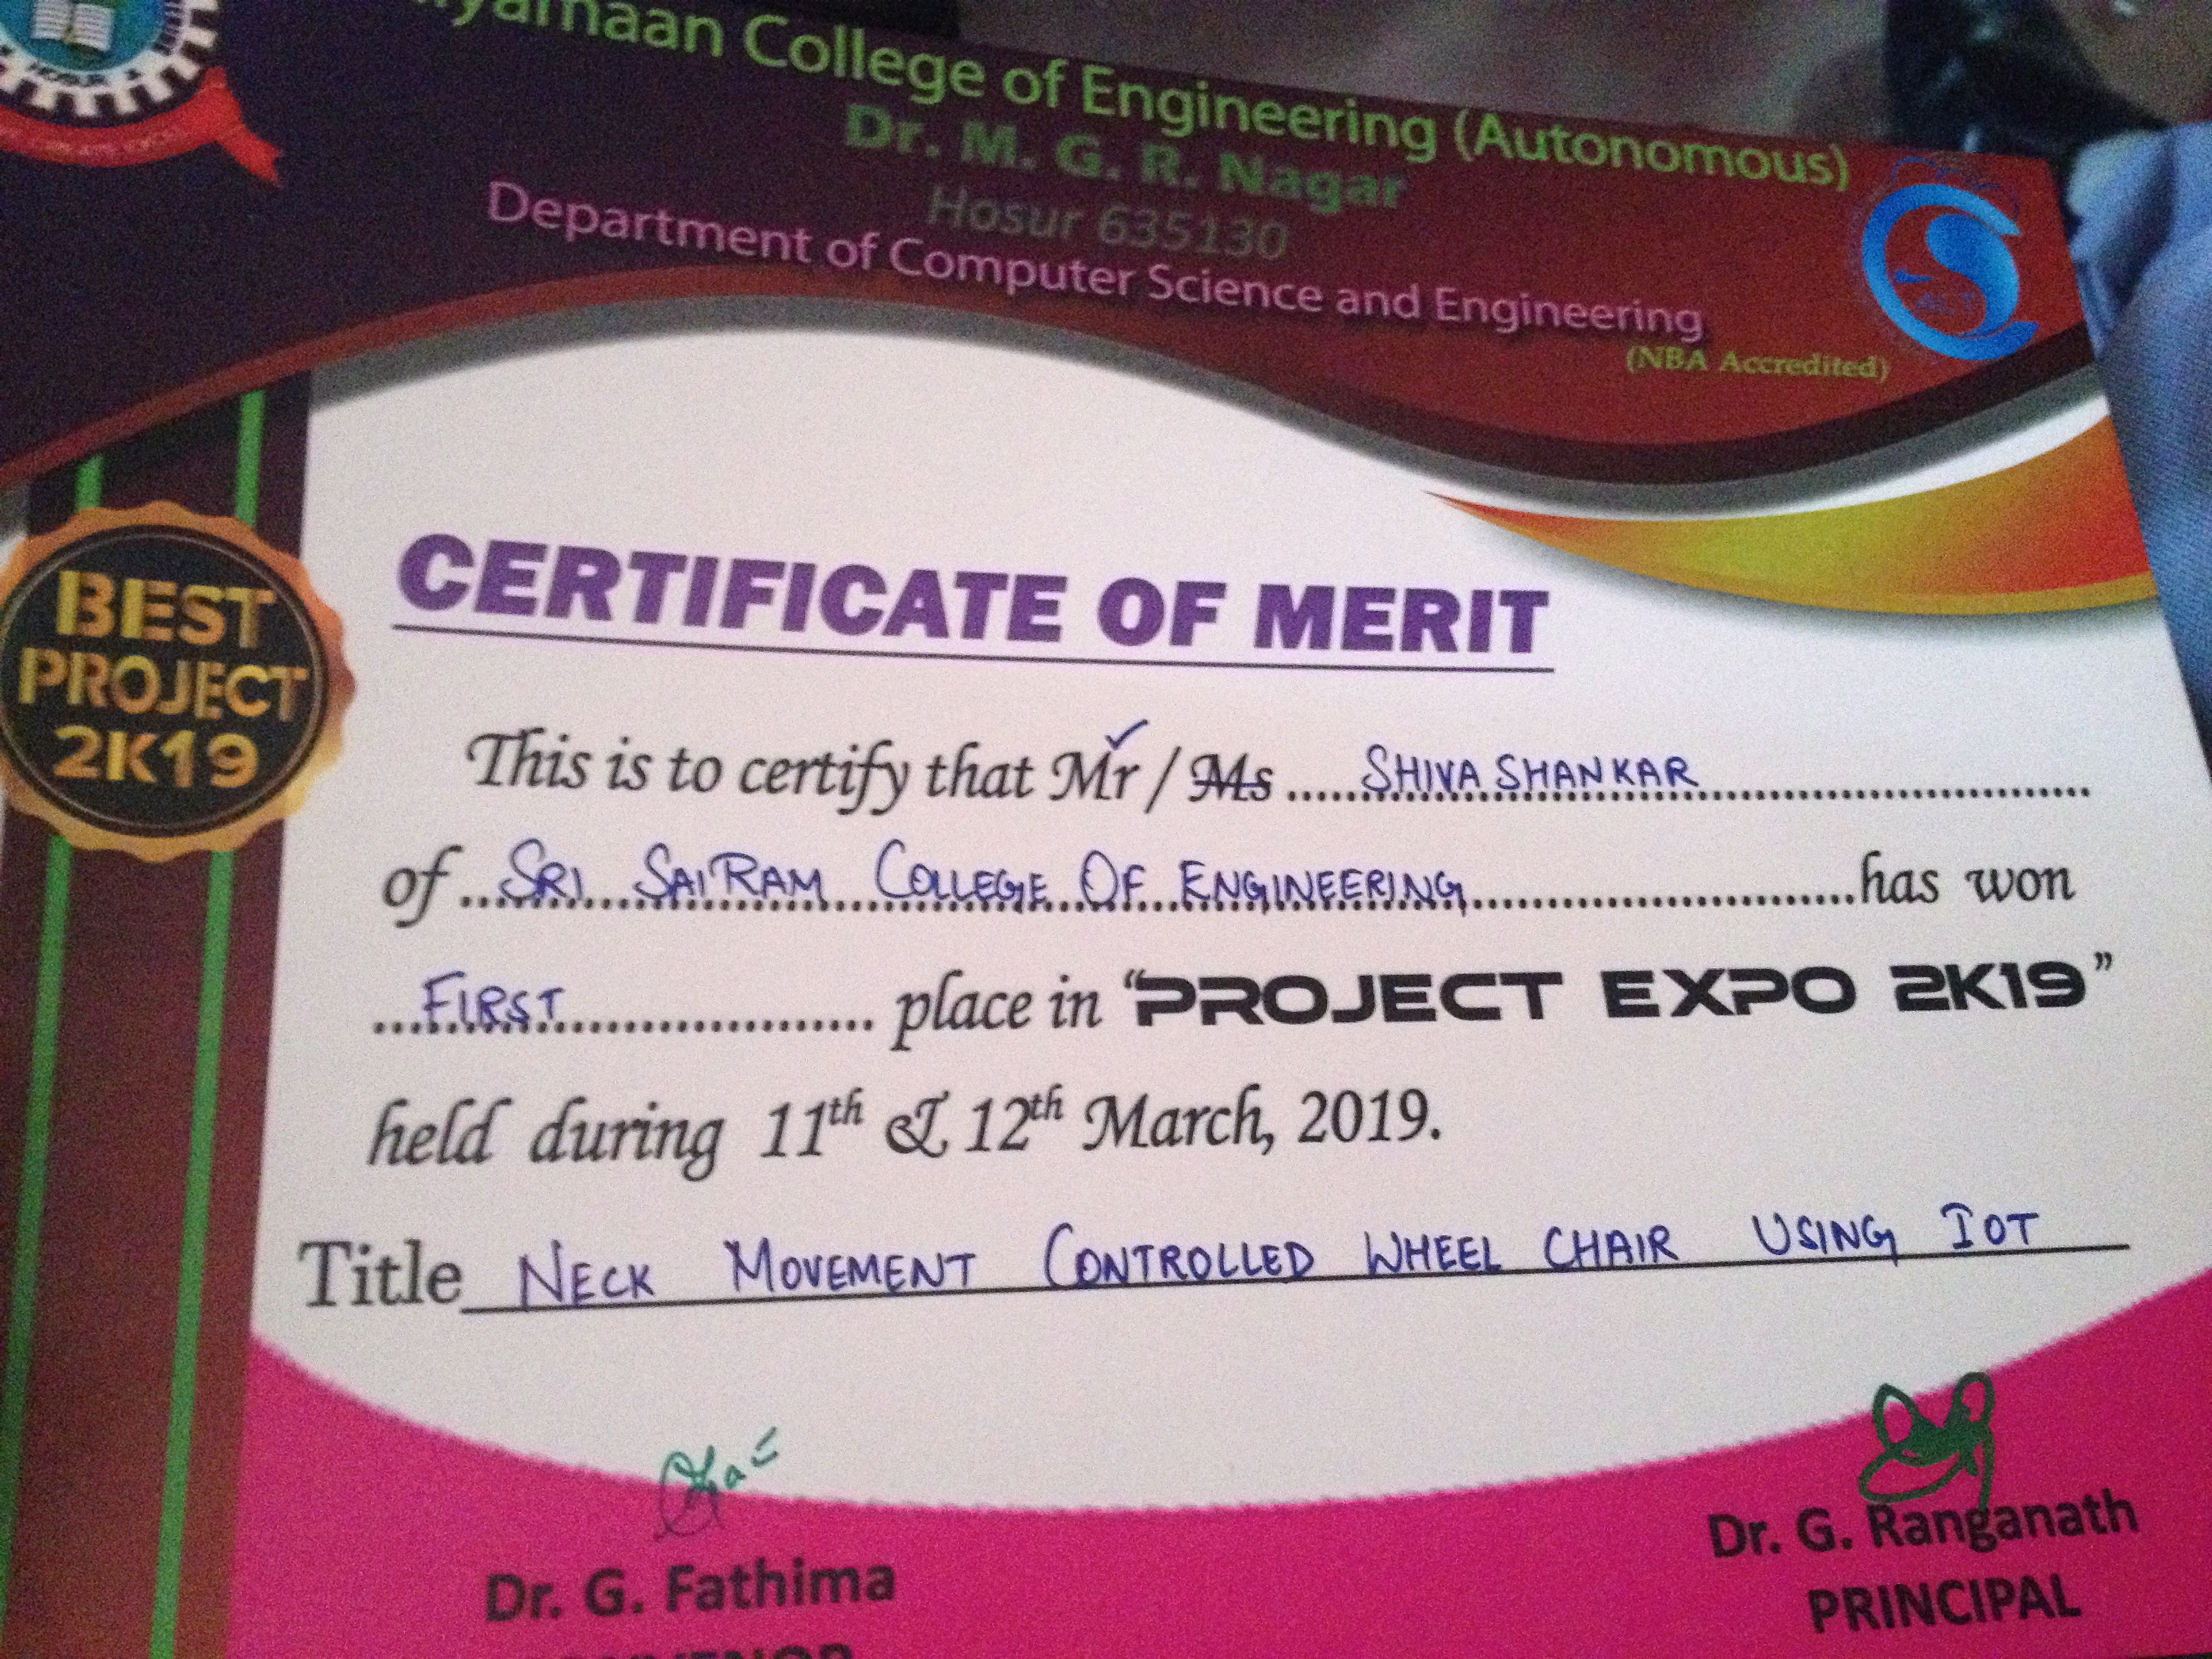 College of Engineering (Autonomous)
Dr. M. G. R. Nagar
Hosur 635130
Department of Computer Science and Engineering
(NBA Accredited)
BEST
PROJECT
2K19
CERTIFICATE OF MERIT
This is to certify that Mr / Ms ..... SHIVA SHANKAR
of SRI SAIRAM COLLEGE OF ENGINEERING has won
FIRST place in “PROJECT EXPO 2K19”
held during 11th & 12th March, 2019.
Title NECK MOVEMENT CONTROLLED WHEEL CHAIR USING IOT
Dr. G. Fathima
Dr. G. Ranganath
PRINCIPAL